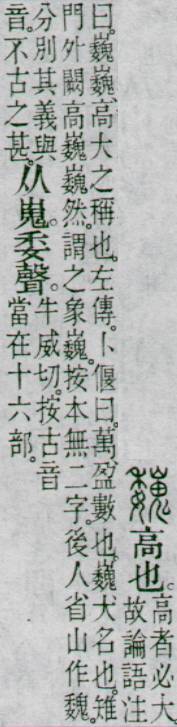 巍 高也。
高者必大
故論語注
曰。巍巍、高大之稱也。左傳。卜偃曰。萬盈數也。巍、大名也。雉
門外闕高巍巍然。謂之象巍。按本無二字。後人省山作魏。
分別其義與
音。不古之甚。
从嵬。委聲。
牛威切。按古音
當在十六部。